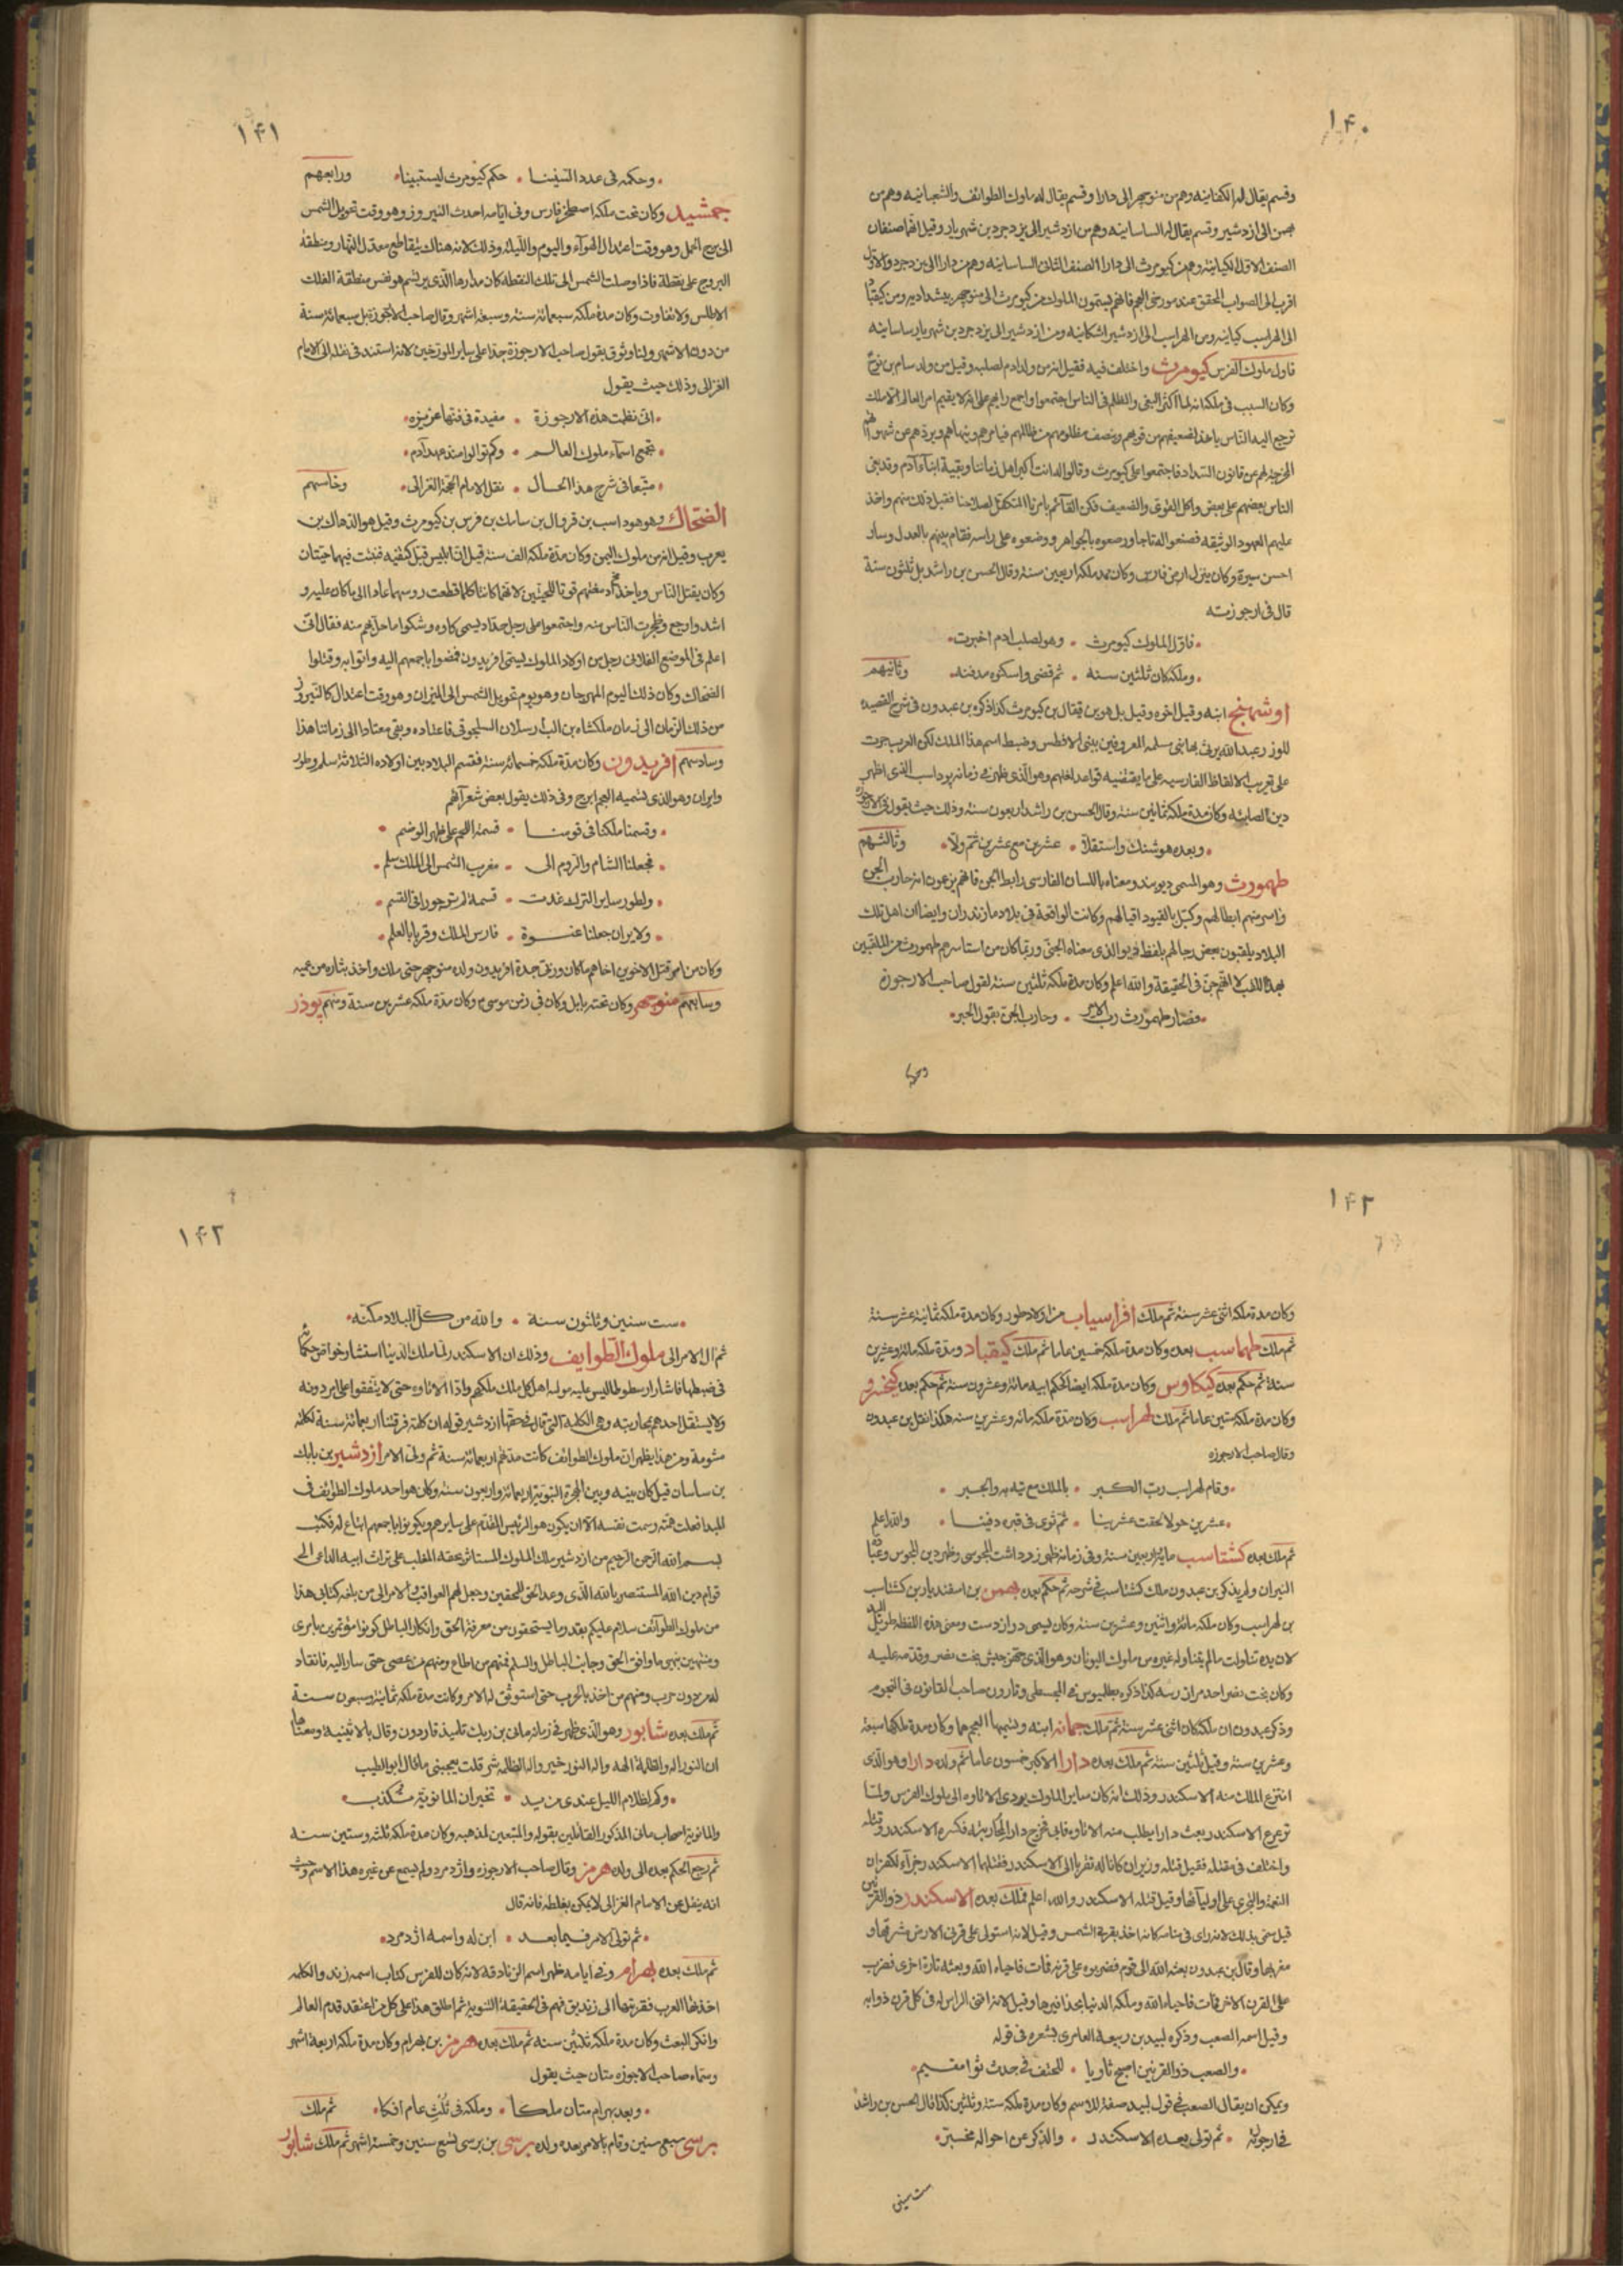 ١٤٠
وقسم يقال لهم الكفانيه وهم من منوجهر الى دارا وقسم يقال له ملوك الطوائف والشجانيه وهم من
الى ازدشير وقسم يقال لهم الساسانيه وهم من ازدشير الى يزدجرد بن شهريار وقيل انهما صنفان
الصنف الاول الكيانيه وهم من كيومرث الى دارا الصنف الثانى الساسانيه وهم من دارا الى يزدجرد والاول
اقرب الى الصواب المحقق عند مورخى العجم فانهم يسمون الملوك من كيومرث الى منوجهر بيشداديه ومن كيقباد
الى لهراسب كيانيه ومن لهراسب الى ازدشير اشكانيه ومن ازدشير الى يزدجرد بن شهريار ساسانيه
فاول ملوك الفرس كيومرث واختلف فيه فقيل انه من ولد ادم لصلبه وقيل من ولد سام بن نوح
وكان السبب فى ملكه انه لما اكثر البغى والظلم فى الناس اجتمعوا واجمع رايهم على انه لا يقيم امر العالم الا ملك
ترجع اليه الناس ياخذ لضعيفهم من قويهم وينصف مظلومهم من ظالمهم فيامرهم وينهاهم ويردهم عن شهواتهم
المخرجة لهم عن قانون السداد فاجتمعوا على كيومرث وقالوا له انت اكبر اهل زماننا وبقية ابناء آدم وقد بغى
الناس بعضهم على بعض واكل القوى الضعيف فكن القآئم بامرنا المتكفل لصلاحنا فقبل ذلك منهم واخذ
عليهم العهود الوثيقه فصنعوا له تاجا ورصعوه بالجواهر ووضعوه على راسه فقام بينهم بالعدل وسار
احسن سيرة وكان ينزل ارض فارس وكان مدة ملكه اربعين سنة وقال الحسن بن راشد بل ثلثون سنة
قال فى ارجوزته
فاول الملوك كيومرث • وهو لصلب ادم اخبرت
وملكه كان ثلثين سنه • ثم قضى واسكنوه مدفنه • وثانيهم
اوشهنج ابنه وقيل اخوه وقيل بل هو بن قيقال بن كيومرث كذا ذكره بن عبدون فى شرح القصيده
للوزر عبدالله يرثى بها بنى سلمه المعروفين ببنى الافطس وضبط اسم هذا الملك لكن العرب جرت
على تعريب الالفاظ الفارسيه على ما يقتضيه قواعد لغاتهم وهو الذى ظهر فى زمانه بوداسب الذى اظهر
دين الصابئه وكان مدة ملكه ثمانين سنة وقال الحسن بن راشد اربعون سنة وذلك حيث يقول فى الارجوزة
وبعده هوشنك واستقلا • عشرين مع عشرين ثم ولا • وثالثهم
طهمورث وهو المسمى ديوبند ومعناه باللسان الفارسى رابط الجن فانهم يزعمون انه حارب الجن
واسر منهم ابطالهم وكبل بالقيود اقيالهم وكانت الواقعة فى بلاد مازندران وايضا ان اهل تلك
البلاد يلقبون بعض رجالهم بلفظ ديو الذى معناه الجنى وربما كان من استاسرهم طهمورث من الملقبين
بهذا اللقب لا انهم جن فى الحقيقة والله اعلم وكان مدة ملكه ثلثين سنة لقول صاحب الارجوزة
فصار طهمورث رب الامر • وحارب الجن بقول الحبر
وحكمه
١٤١
وحكمه فى عدد السنينا • حكم كيومرث ليستبينا • ورابعهم
جمشيد وكان تخت ملكه اصطخر فارس وفى ايامه احدث النيروز وهو وقت تحويل الشمس
الى برج الحمل وهو وقت اعتدال الهوآء واليوم والليله وذلك لانه هناك يتقاطع معدل النهار ومنطقة
البروج على نقطة فاذا وصلت الشمس الى تلك النقطه كان مدارها الذى يرتسم هو نفس منطقة الفلك
الاطلس ولا تفاوت وكان مدة ملكه سبعمائة سنة وسبعة اشهر وقال صاحب الارجوزة بل سبعمائة سنة
من دون الاشهر ولنا وثوق بقول صاحب الارجوزة جدا على ساير المورخين لانه استند فى نقله الى الامام
الغزالى وذلك حيث يقول
انى نظمت هذه الارجوزة • مفيدة فى فنها عزيزه
تجمع اسماء ملوك العالم • وكم توالوا منذ عهد آدم
متبعا فى شرح هذا الحال • نقل الامام الحجة الغزالى • وخامسهم
الضحاك وهو بن قروال بن سامك بن فرس بن كيومرث وقيل هو الدهاك بن
يعرب وقيل انه من ملوك اليمن وكان مدة ملكه الف سنة قيل ان ابليس قبل كتفيه فنبتت فيهما حيتان
وكان يقتل الناس وياخذ ادمغتهم قوتا للحيتين لانهما كانتا كلما قطعت روسهما عادا الى ما كان عليه و
اشد واوجع وضجرت الناس منه واجتمعوا على رجل حداد يسمى كاوه وشكوا ما حل بهم منه فقال انى
اعلم فى الموضع الفلانى رجل من اولاد الملوك يسمى افريدون فمضوا باجمعهم اليه واتوا به وقتلوا
الضحاك وكان ذلك اليوم المهرجان وهو يوم تحويل الشمس الى الميزان وهو وقت اعتدال كالنيروز
من ذلك الزمان الى زمان ملكشاه بن الب ارسلان السلجوقى فاعتاده وبقى معتادا الى زماننا هذا
وسادسهم افريدون وكان مدة ملكه خمسمائة سنة فقسم البلاد بين اولاده الثلاثة سلم وطور
وايران وهو الذى تسميه العجم ايرج وفى ذلك يقول بعض شعرآئهم
وقسمنا ملكنا فى قومنا • قسمة اللحم على ظهر الوضم
فجعلنا الشام والروم الى • مغرب الشمس الى الملك سلم
ولطور ساير الترك غدت • قسمة لم تر جورا فى القسم
ولايران جعلنا عنوة • فارس الملك وقربا بالعلم
وكان من امر قتل الاخوين اخاهم ما كان ورزق جده افريدون ولده منوجهر حتى ملك واخذ بثاره من عميه
وسابعهم منوجهر وكان تخته بابل وكان فى زمن موسى وكان مدة ملكه عشرين سنة ومنهم بوذر
١٤٢
وكان مدة ملكه اثنى عشر سنة ثم ملك افراسياب من اولاد طور وكان مدة ملكه ثمانية عشر سنة
ثم ملك طهماسب بعده وكان مدة ملكه خمسين عاما ثم ملك كيقباد ومدة ملكه مائة وعشرين
سنة ثم حكم بعده كيكاوس وكان مدة ملكه ايضا كحكم ابيه مائة وعشرون سنة ثم حكم بعده كيخسرو
وكان مدة ملكه ستين عاما ثم ملك لهراسب وكان مدة ملكه مائة وعشرين سنه هكذا نقل بن عبدون
وقال صاحب الارجوزه
وقام لهراسب رب الكبر • بالملك مع تيه به والجبر
عشرين حولا لحقت عشرينا • ثم ثوى فى قبره دفينا • والله اعلم
ثم ملك بعده كشتاسب مائة واربعين سنة وفى زمانه ظهر زرداشت المجوسى وظهر دين المجوس وعبادة
النيران ولم يذكر بن عبدون ملك كشتاسب فى شرحه ثم حكم بعده بهمن بن اسفنديار بن كشتاسب
بن لهراسب وكان ملكه مائة واثنين وعشرين سنة وكان يسمى دراز دست ومعنى هذه اللفظة طويل اليد
لان يده تناولت ما لم يتناوله غيره من ملوك اليونان وهو الذى جهز جيش بخت نصر وقدمه عليه
وكان بخت نصر احد مرازبته كذا ذكره بطلميوس فى المجسطى وقارون صاحب القانون فى النجوم
وذكر عبدون ان ملكه كان اثنى عشر سنة ثم ملك جمانه ابنه وتسميها العجم هما وكان مدة ملكها سبعة
وعشرين سنة وقيل ثلثين سنة ثم ملك بعده دارا الاكبر خمسون عاما ثم ولده دارا وهو الذى
انتزع الملك منه الاسكندر وذلك انه كان ساير الملوك يودى الاتاوه الى ملوك الفرس ولما
ترعرع الاسكندر بعث دارا يطلب منه الاتاوه فابى فخرج دارا لمحاربته فكسره الاسكندر وقتله
واختلف فى مقتله فقيل قتله وزيران كانا له تقربا الى الاسكندر فقتلهما الاسكندر جزآء لكفران
النعمة والتجرى على اوليآئهما وقيل قتله الاسكندر والله اعلم فملك بعده الاسكندر ذو القرنين
قيل سمى بذلك لانه راى فى منامه كانه اخذ بقرنى الشمس وقيل لانه استولى على قرنى الارض مشرقها و
مغربها وقال بن عبدون بعثه الله الى قوم فضربوه على قرنه فمات فاحياه الله وبعثه تارة اخرى فضرب
على القرن الاخر فمات فاحياه الله وملكه الدنيا بحذافيرها وقيل لانه افنى الراس له فى كل قرن ذوابه
وقيل اسمه الصعب وذكره لبيد بن ربيعه العامرى بشعره فى قوله
والصعب ذو القرنين اصبح ثاويا • للحتف فى جدث ثوا مقيم
ويمكن ان يقال الصعب فى قول لبيد صفة للاسم وكان مدة ملكه ستة وثلثين كذا قال الحسن بن راشد
فى ارجوزته • ثم تولى بعده الاسكندر • والذكر عن احواله مخبر
ست سنين
١٤٣
ست سنين وثلثون سنة • والله من كل البلاد مكنه
ثم ال الامر الى ملوك الطوايف وذلك ان الاسكندر لما ملك الدنيا استشار خواص حكمائه
فى ضبطها فاشار ارسطوطاليس عليه يوليه اهل كل ملك ملكهم واذا الاتاوه حتى لا يتفقوا على اير دونه
ولا يستقل احدهم بمحاربته وهى الكلمه التى قال فى حقها ازدشير قوله ان كلمة فرقتنا اربعمائة سنة لكلمة
مشومة ومن هذا يظهر ان ملوك الطوائف كانت مدتهم اربعمائة سنة ثم ولى الامر ازدشير بن بابك
بن ساسان قيل كان بينه وبين الهجرة النبوية اربعمائة واربعون سنة وكان هو احد ملوك الطوائف فى
المبدا فعلت همته وسمت نفسه الا ان يكون هو الرئيس المقدم على سايرهم ويكونوا باجمعهم اتباع له فكتب
بسم الله الرحمن الرحيم من ازدشير ملك الملوك المستاثر بحقه المغلب على تراث ابيه الداعى الى
قوام دين الله المستنصر بالله الذى وعد الحق للمحقين وجعل لهم العواقب والامر الى من بلغه كتابى هذا
من ملوك الطوآئف سلام عليكم بقدر ما يستحقون من معرفة الحق وانكار الباطل كونوا مؤتمرين بامرى
ومنتهين بنهى ما وافق الحق وجانب الباطل والسلم فمنهم من اطاع ومنهم من عصى حتى سار اليه فانقاد
له من دون حرب ومنهم من اخذ بالحرب حتى استوثق له الامر وكانت مدة ملكه ثمانية وسبعون سنة
ثم ملك بعده شابور وهو الذى ظهر فى زمانه مانى بن ربك تلميذ قاردون وقال بالاثينية ومعناها
ان النور اله والظلمة اله واله النور خير واله الظلمه شر قلت يعجبنى ما قال ابو الطيب
وكم لظلام الليل عندى من يد • تخبر ان المانوية تكذب
والمانوية اصحاب مانى المذكور القائلين بقوله والمتبعين لمذهبه وكان مدة ملكه ثلثه وستين سنه
ثم رجع الحكم بعده الى ولده هرمز وقال صاحب الارجوزه واژدمرد ولم يسمع عن غيره هذا الاسم وحيث
انه ينقل عن الامام الغزالى لا يمكن بغلطه فانه قال
ثم تولى الامر فيما بعد • ابن له واسمه اژدمرد
ثم ملك بعده بهرام وفى ايامه ظهر اسم الزنادقه لانه كان للفرس كتاب اسمه زند والكلمه
اخذتها العرب فقربتها الى زنديق فهم فى الحقيقة الثنوية ثم اطلق هذا على كل من اعتقد قدم العالم
وانكر البعث وكان مدة ملكه ثلثين سنة ثم ملك بعده هرمز بن بهرام وكان مدة ملكه اربعة اشهر
وسماه صاحب الارجوزه متان حيث يقول
وبعد بهرام متان ملكا • وملكه فى ثلث عام افكا • ثم ملك
برسى سبع سنين وقام بالامر بعده ولده برسى بن برسى تسع سنين وخمسة اشهر ثم ملك شابور